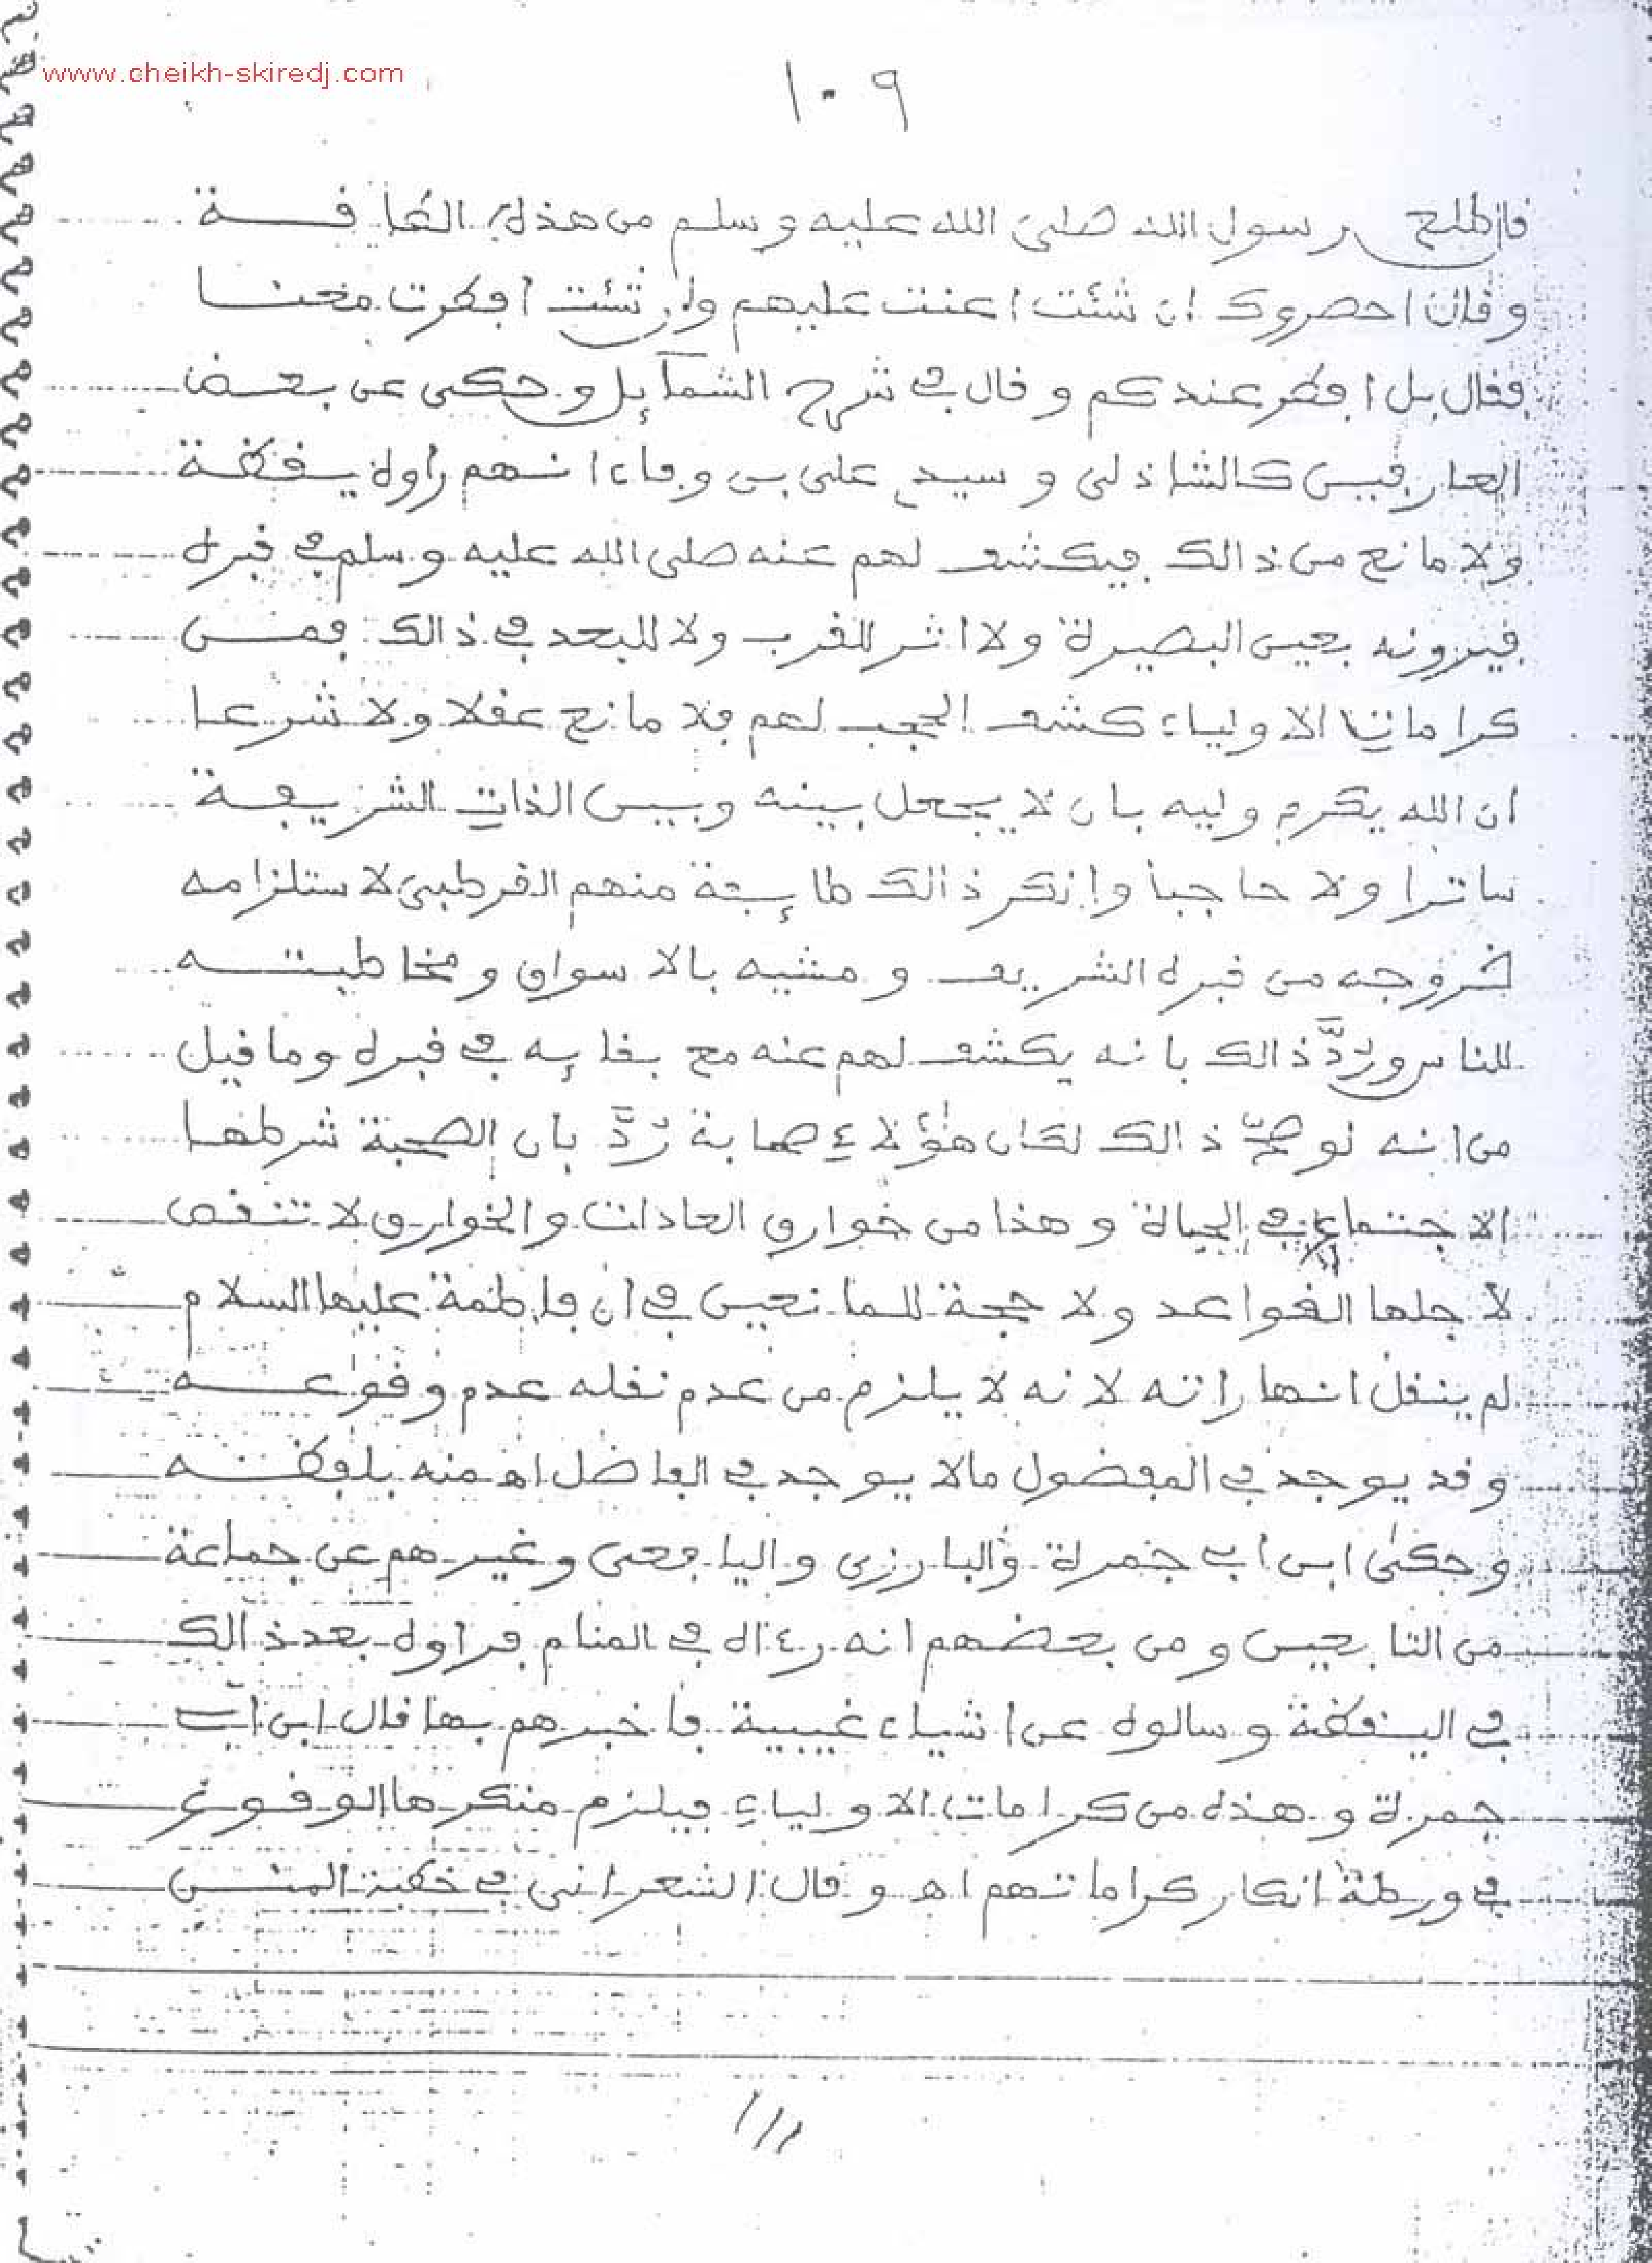 www.cheikh-skiredj.com
١٠٩
فاطلع رسول الله صلى الله عليه وسلم من هذه الطافة
وقال احصروك ان شئت اعنت عليهم وان شئت افطرت معنا
فقال بل افطر عندكم وقال في شرح الشمآئل وحكى عن بعض
العارفين كالشاذلي وسيدي علي بن وفاء انهم راوه يقظة
ولا مانع من ذالك فيكشف لهم عنه صلى الله عليه وسلم في قبره
فيرونه بعين البصيرة ولا اثر للقرب ولا للبعد في ذالك فمن
كرامات الاولياء كشف الحجب لهم فلا مانع عقلا ولا شرعا
ان الله يكرم وليه بان لا يجعل بينه وبين الذات الشريفة
ساترا ولا حاجبا وانكر ذالك طائفة منهم القرطبي لاستلزامه
خروجه من قبره الشريف ومشيه بالاسواق ومخاطبته
للناس ورُدَّ ذالك بانه يكشف لهم عنه مع بقائه في قبره وما قيل
من انه لو صحّ ذالك لكان هؤلاء صحابة رُدَّ بان الصحبة شرطها
الاجتماع في الحياة وهذا من خوارق العادات والخوارق لا تنقض
لاجلها القواعد ولا حجة للمانعين في ان فاطمة عليها السلام
لم ينقل انها راته لانه لا يلزم من عدم نقله عدم وقوعه
وقد يوجد في المفضول مالا يوجد في الفاضل اهـ منه بلفظه
وحكى ابن ابي جمرة والبارزي واليافعي وغيرهم عن جماعة
من التابعين ومن بعضهم انه رءاه في المنام فراوه بعد ذالك
في اليقظة وسالوه عن اشياء غيبية فاخبرهم بها قال ابن ابي
جمرة وهذه من كرامات الاولياء فيلزم منكرها الوقوع
في ورطة انكار كراماتهم اهـ وقال الشعراني في خطبة المنن
١١١